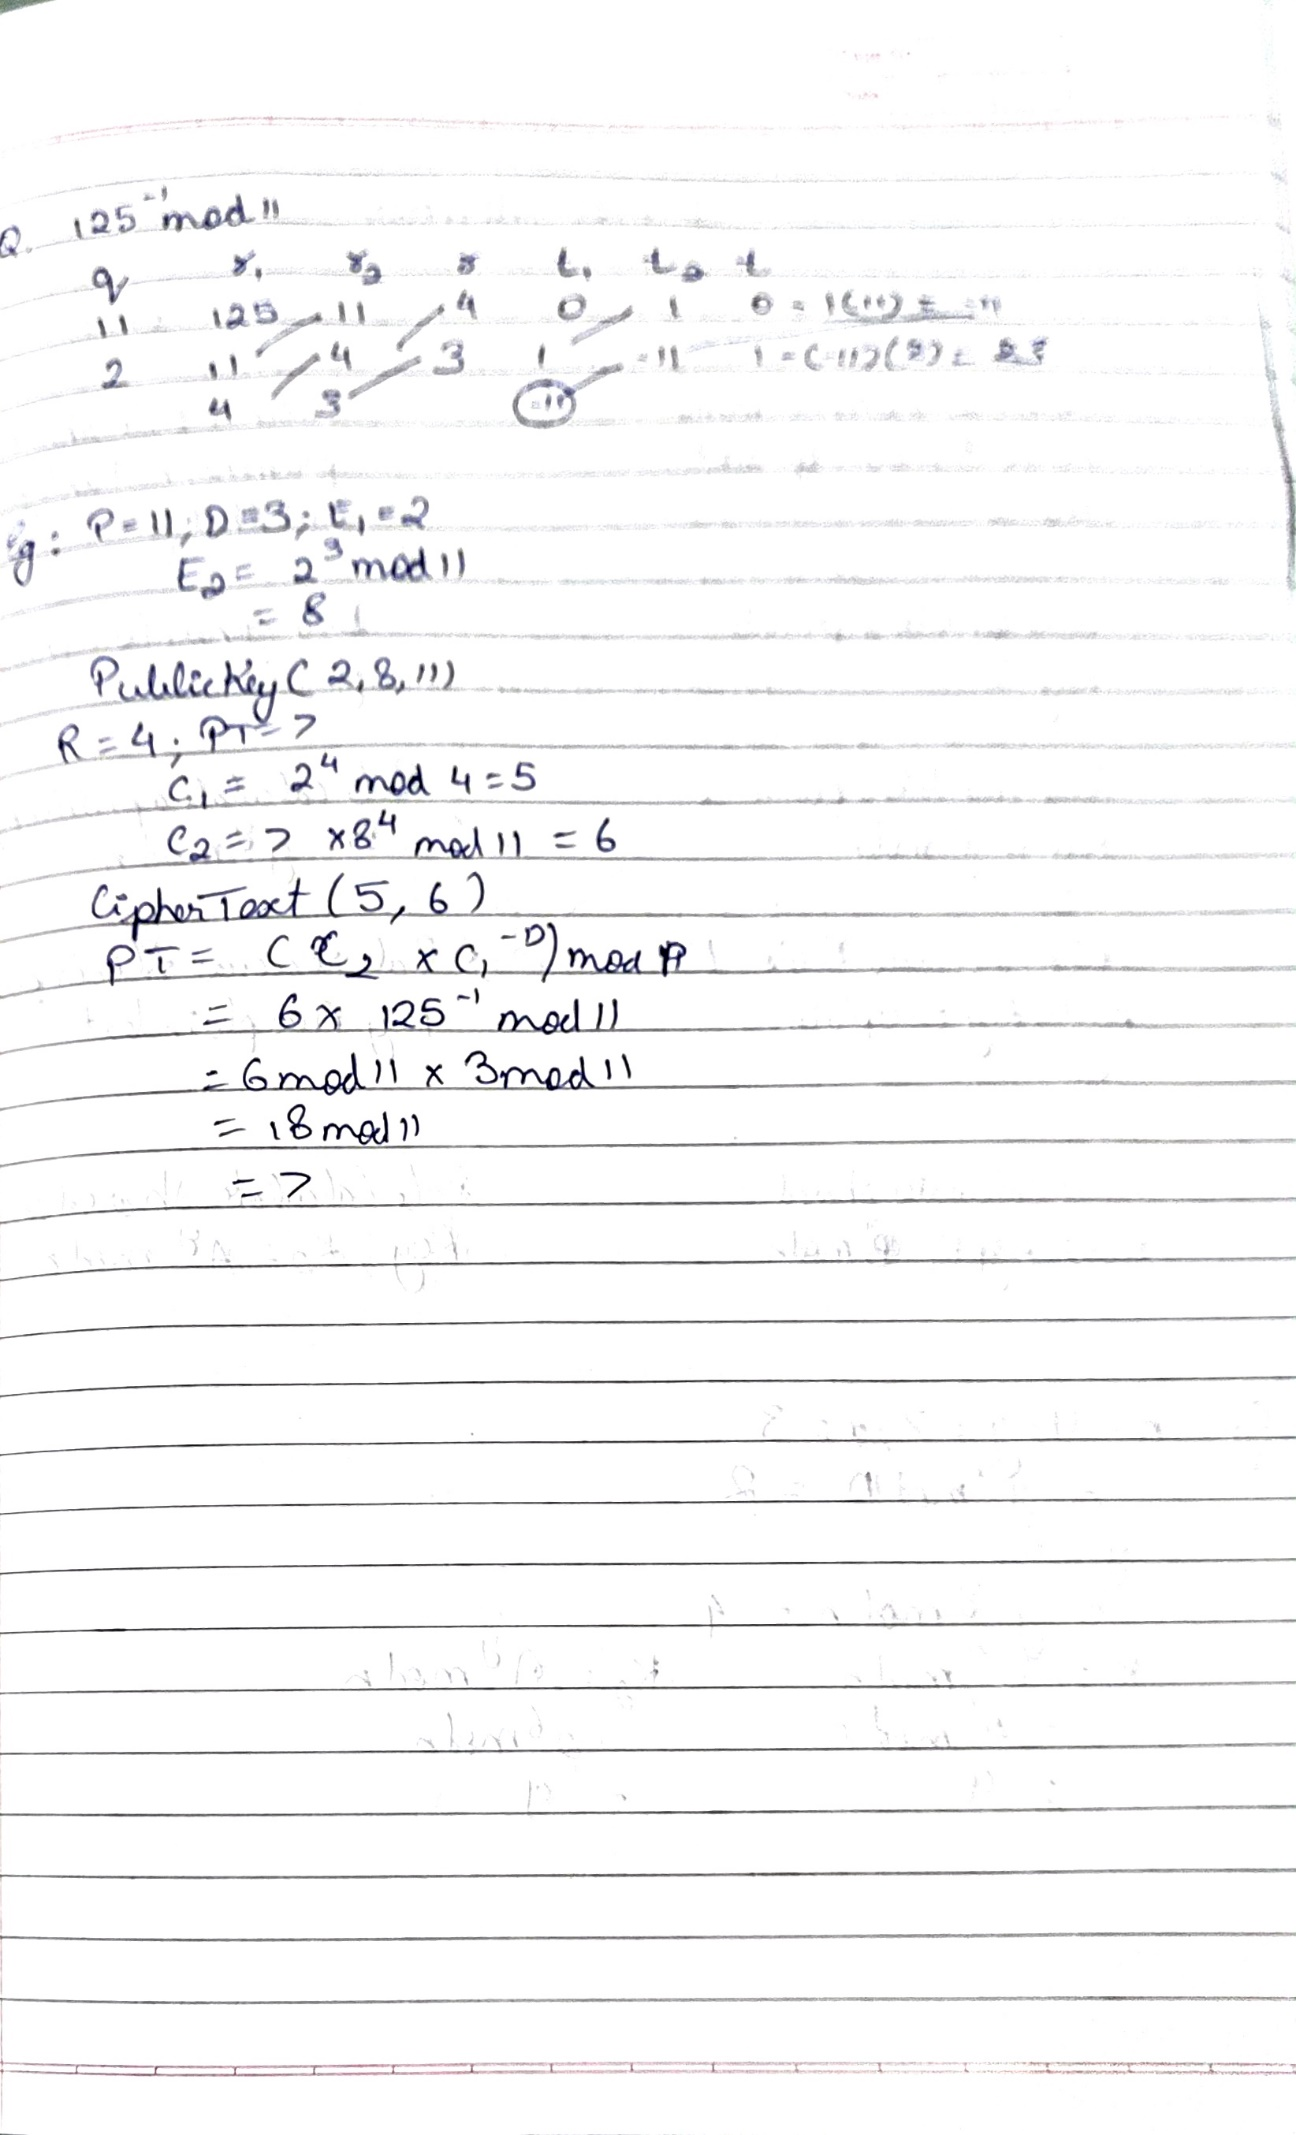 Q. 125⁻¹ mod 11
q r₁ r₂ r t₁ t₂ t
11 125 11 4 0 1 0 - 1(11) = -11
2 11 4 3 1 -11 1 - (-11)(2) = 23
4 3 -11
Eg: P = 11, D = 3; E₁ = 2
E₂ = 2³ mod 11
= 8
Public Key (2, 8, 11)
R = 4; PT = 7
C₁ = 2⁴ mod 4 = 5
C₂ = 7 × 8⁴ mod 11 = 6
Cipher Text (5, 6)
PT = (C₂ × C₁⁻ᴰ) mod P
= 6 × 125⁻¹ mod 11
= 6 mod 11 × 3 mod 11
= 18 mod 11
= 7